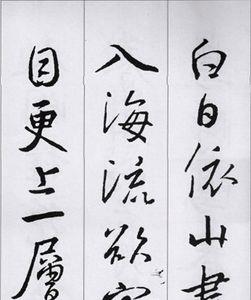 白日依山盡
入海流欲窮
目更上一層